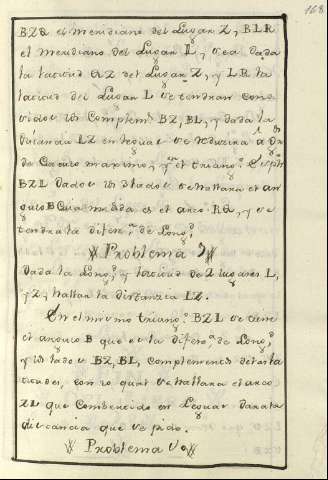 168
BZQ el meridiano del Lugar Z, BLR
el meridiano del Lugar L, sea dada
la latitud QZ del Lugar Z, y LR la
latitud del Lugar L se tendran cono
sidos los Complemtos BZ, BL, y dada la
distancia LZ en leguas se reducira a Gr
de Circulo maximo, y en el triango
BZL dados los 3 lados se hallara el an
gulo B Cuia medida es el arco RQ, y se
tendra la difera de Longd
Problema 7
Dada la Longd y latitud de 2 lugares L,
y Z, hallar la distancia LZ.
En el mismo triango BZL se tiene
el angulo B que es la difera de Longd
y los lados BZ, BL, complementos de las la
titudes, con lo qual se hallara el arco
ZL que Combertido en leguas dara la
distancia que se pide.
Problema